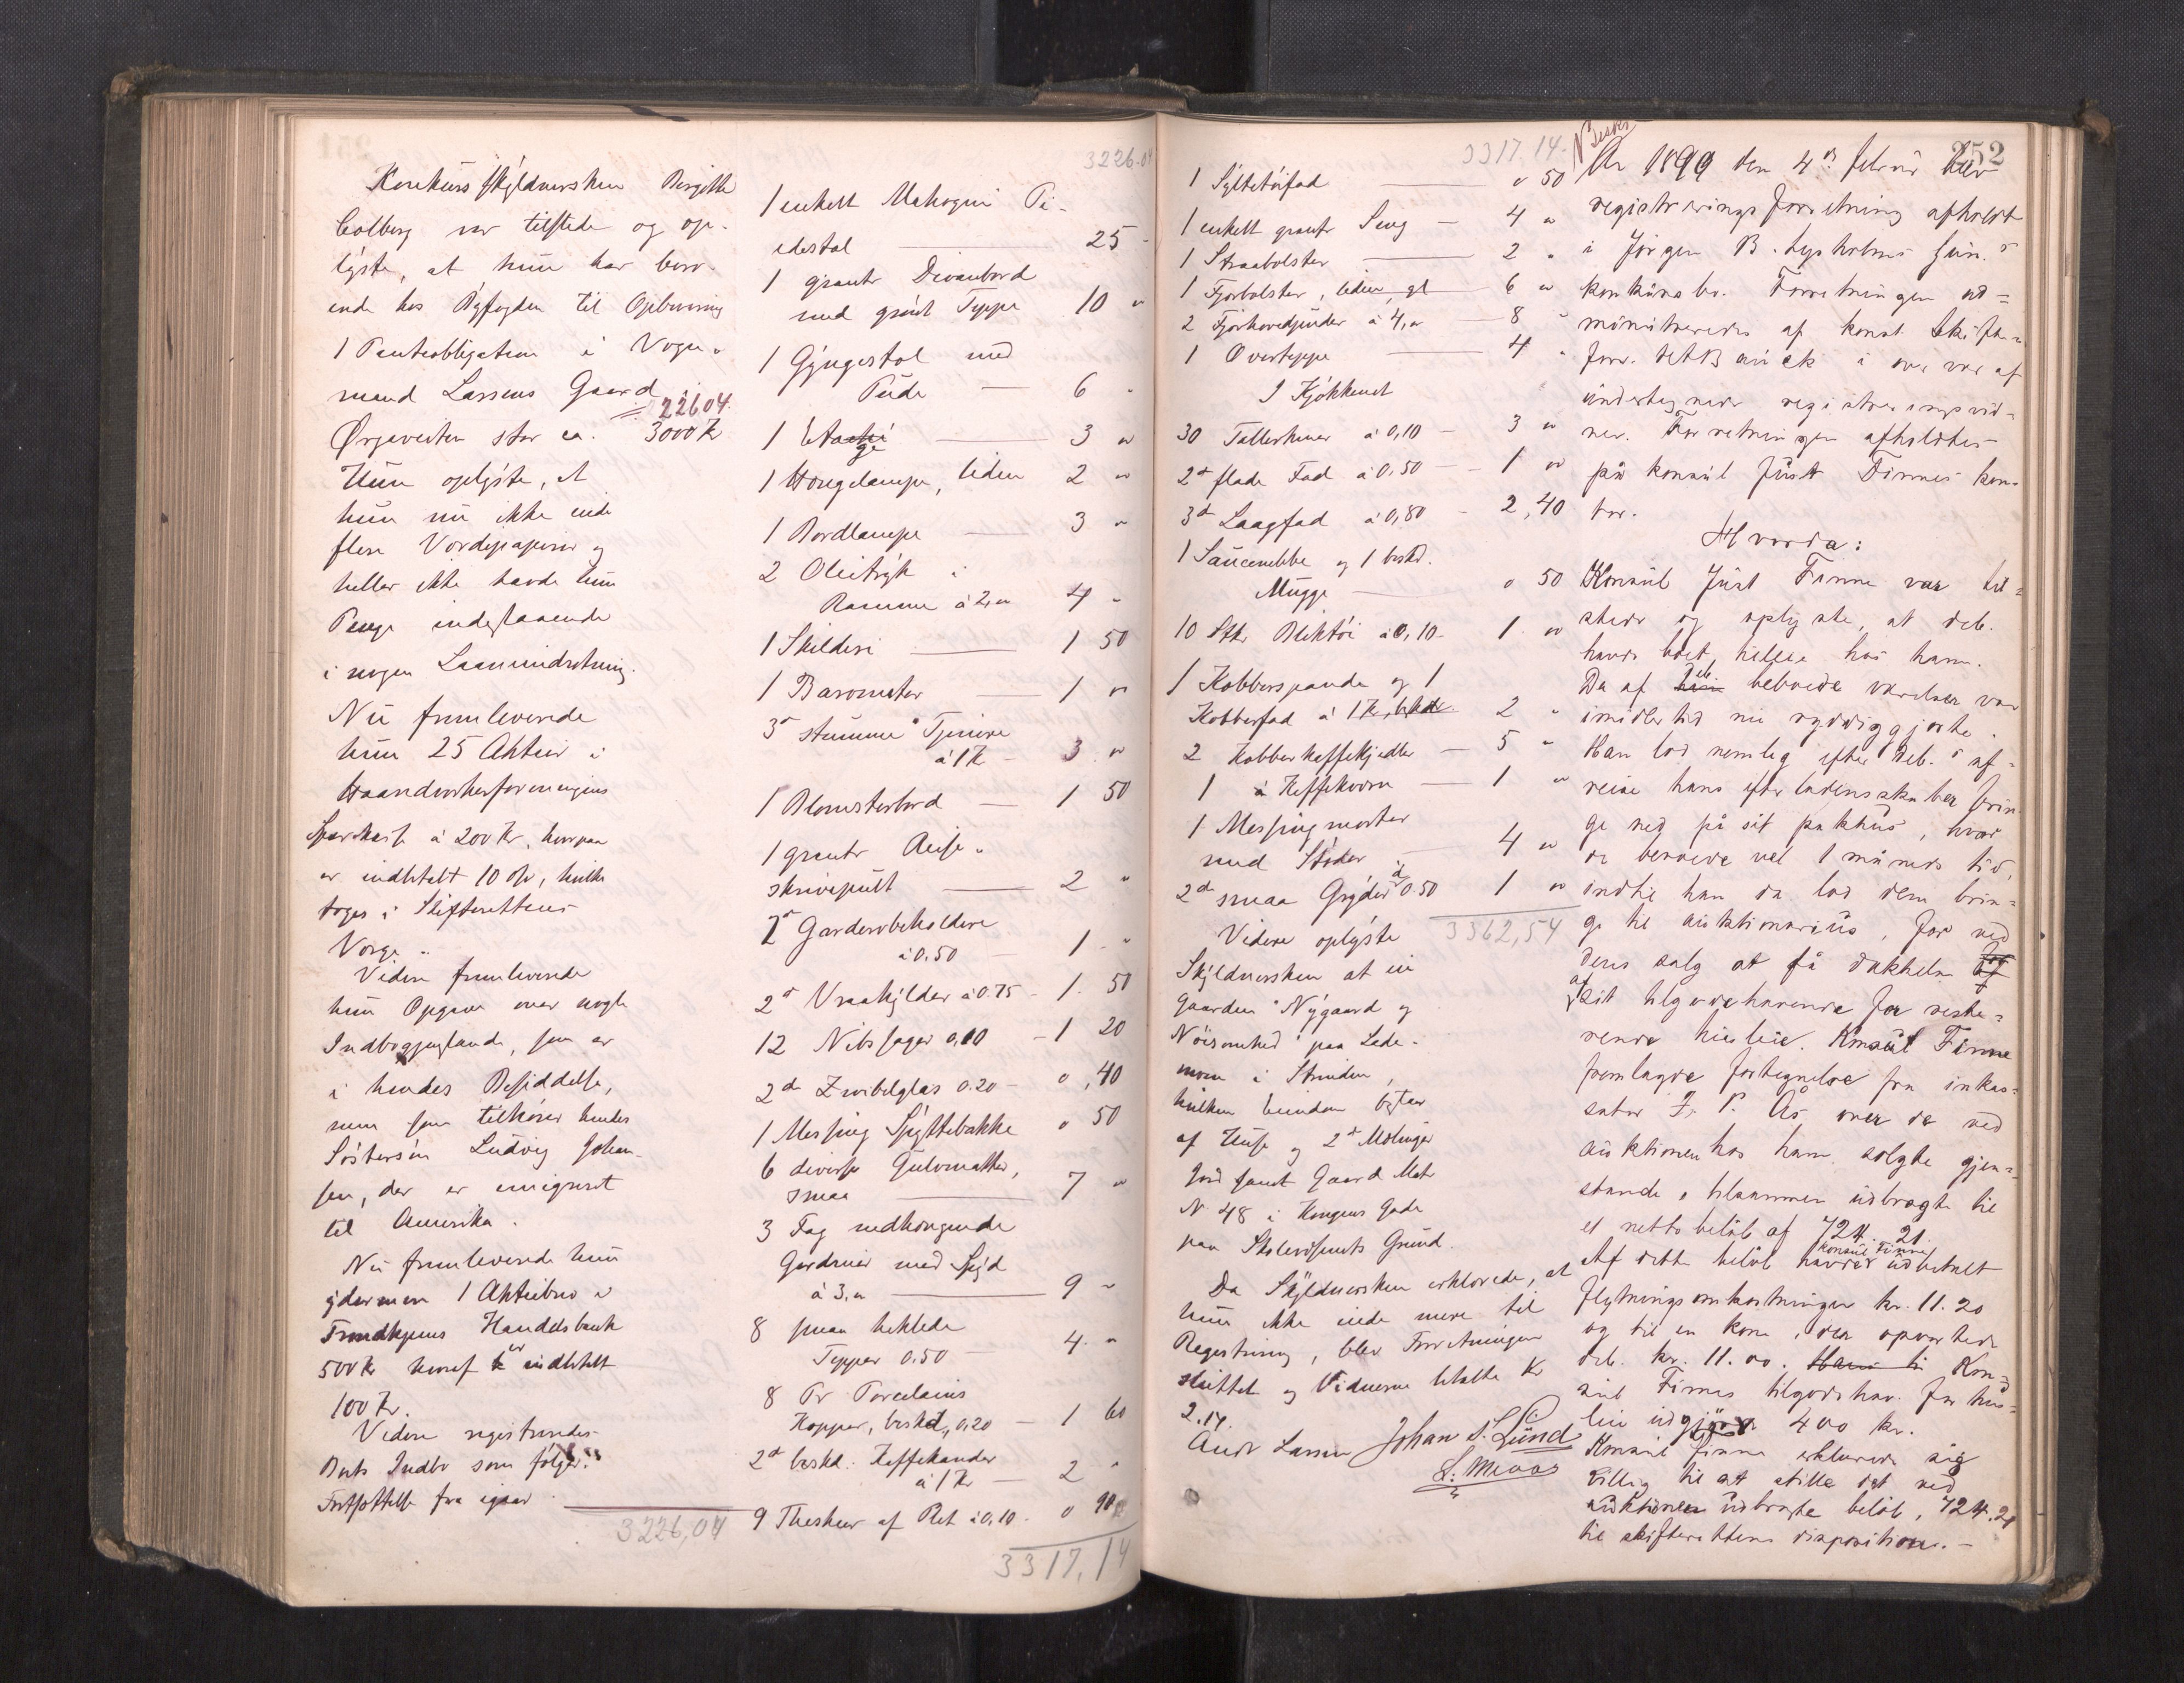 Konkursskyldnersken Birgitte
Colberg var tilstede og op-
lyste, at hun har bero-
ende hos Byfogden til Opbevaring
1 Panteobligation i Vogn-
mand Larsens Gaard i
226.04.
Ørjaveiten stor ca. 3000 Kr
Hun oplyste, at
hun nu ikke eide
flere Værdipapirer og
heller ikke havde hun
Penge indestaaende
i nogen Laaneindretning.
Nu fremleverede
hun 25 Aktier i
Haandverkerforeningens
Sparekasse à 200 Kr, hvorpaa
er indbetalt 10 %, hvilke
toges i Skifterettens
Værge.
Videre fremleverede
hun Opgave over nogle
Indbogjenstande, som er
i hendes Besiddelse,
men som tilhører hendes
Søstersøn Ludvig Johan-
sen, der er emigreret
til Amerika.
Nu fremleverede hun
ydermere 1 Aktiebrev i
Trondhjems Handelsbank
500 Kr hvoraf er indbetalt
100 Kr.
Videre registreredes
Boets Indbo som følger:
Fortsættelse fra igaar
3226,04
3226.04
1 enkelt Mahogni Pi-
edestal 25 -
1 grantr Divanbord
med grønt Teppe 10 "
1 Gyngestol med
Pude 6 "
1 Etagè 3 "
1 Hængelampe, liden 2 "
1 Bordlampe 3 "
2 Olietryk i
Ramme à 2,- 4 "
1 Skilderi 1 50
1 Barometer 1 "
3 stumme Tjenere
à 1 K 3 "
1 Blomsterbord 1 50
1 grantr Reise-
skrivepult 2 "
2 Garderobeholdere
à 0.50 1 "
2 Vraakjelder à 0.75 1. 50
12 Nibssager 0,10 1 20
2 do Zwibelglas 0.20 0,40
1 Messing Spyttebakke 0 50
6 diverse Gulvmatter,
smaa 7 "
3 Fag nedhængende
Gardiner med Spyd
à 3,- 9 "
8 smaa heklede
Tepper 0.50 4. "
8 Pr Porcelains
Kopper, beskd, 0,20 1 60
2 beskd. Kaffekander
à 1 Kr 2 "
9 Theskeer af Blet à 0,10 0 90
3317,14
3317.14
1 Syltetøifad 0 50
1 enkelt grantr Seng 4 "
1 Straabolster 2 "
1 Fjærbolster, liden, gl 6 "
2 Fjærhovedpuder à 4,- 8 "
1 Overteppe 4 "
I Kjøkkenet
30 Tallerkener à 0,10 3 "
2 flade Fad à 0,50 1 "
3 Laagfad à 0,80 2,40
1 Saucenebbe og 1 beskd.
Mugge 0 50
10 Stk Bliktøi à 0,10 1 "
1 Kobberpande og 1
Kobberfad à 1 Kr, beskd. 2 "
2 Kobberkaffekjedler 5 "
1 Kaffekværn 1 "
1 Messingmorter
med Støder 4 "
2 smaa Gryder à 0.50 1 "
3362,54
Videre oplyste
Skyldnersken at eie
Gaarden "Nygaard og
Nøisomhed" paa Lade-
moen i Strinden,
hvilken Eiendom bestaar
af Huse og 2 Mælinger
Jord samt Gaard Matr
N. 48 i Kongens Gade
paa Skolevæsenets Grund.
Da Skyldnersken erklærede, at
hun ikke eiede mere til
Registrering, blev Forretningen
sluttet og Vidnerne betalte Kr
2.14.
Andr Larsen Johan S. Lund
L. Moos
252
År 1899 den 4de februar blev
registreringsforretning afholdt
i Jørgen B. Lysholms jun.s
konkursbo. Forretningen ad-
ministreredes af konst. skifte-
forv. i overvær af
undertegnede registreringsvid-
ner. Forretningen afholdtes
på konsul Just Finnes kon-
tor.
Hvorda:
Konsul Just Finne var til-
stede og oplyste, at deb.
havde boet tilleie hos ham.
De af deb. beboede værelser var
imidlertid nu ryddiggjorte.
Han lod nemlig efter deb.s af-
reise hans efterladenskaber brin-
ge ned på sit pakhus, hvor
de beroede vel 1 måneds tid,
indtil han da lod dem brin-
ge til auktionarius, for ved
deres salg at få dækkelse
af sit tilgodehavende for reste-
rende husleie. Konsul Finne
fremlagde fortegnelse fra inkas-
sator J. P. Ås over de ved
auktionen hos ham solgte gjen-
stande, tilsammen udbragte til
et nettobeløb af 724.21.
Af dette beløb havde konsul Finne udbetalt
flytningsomkostninger kr. 11.20
og til en kone, der opvartede
deb. kr. 11.00. Kon-
sul Finnes tilgodehav. for hus-
leie udgjør 400 kr.
Konsul Finne erklærede sig
villig til at stille det ved
auktionen udbragte beløb, 724.21
til skifterettens disposition. -